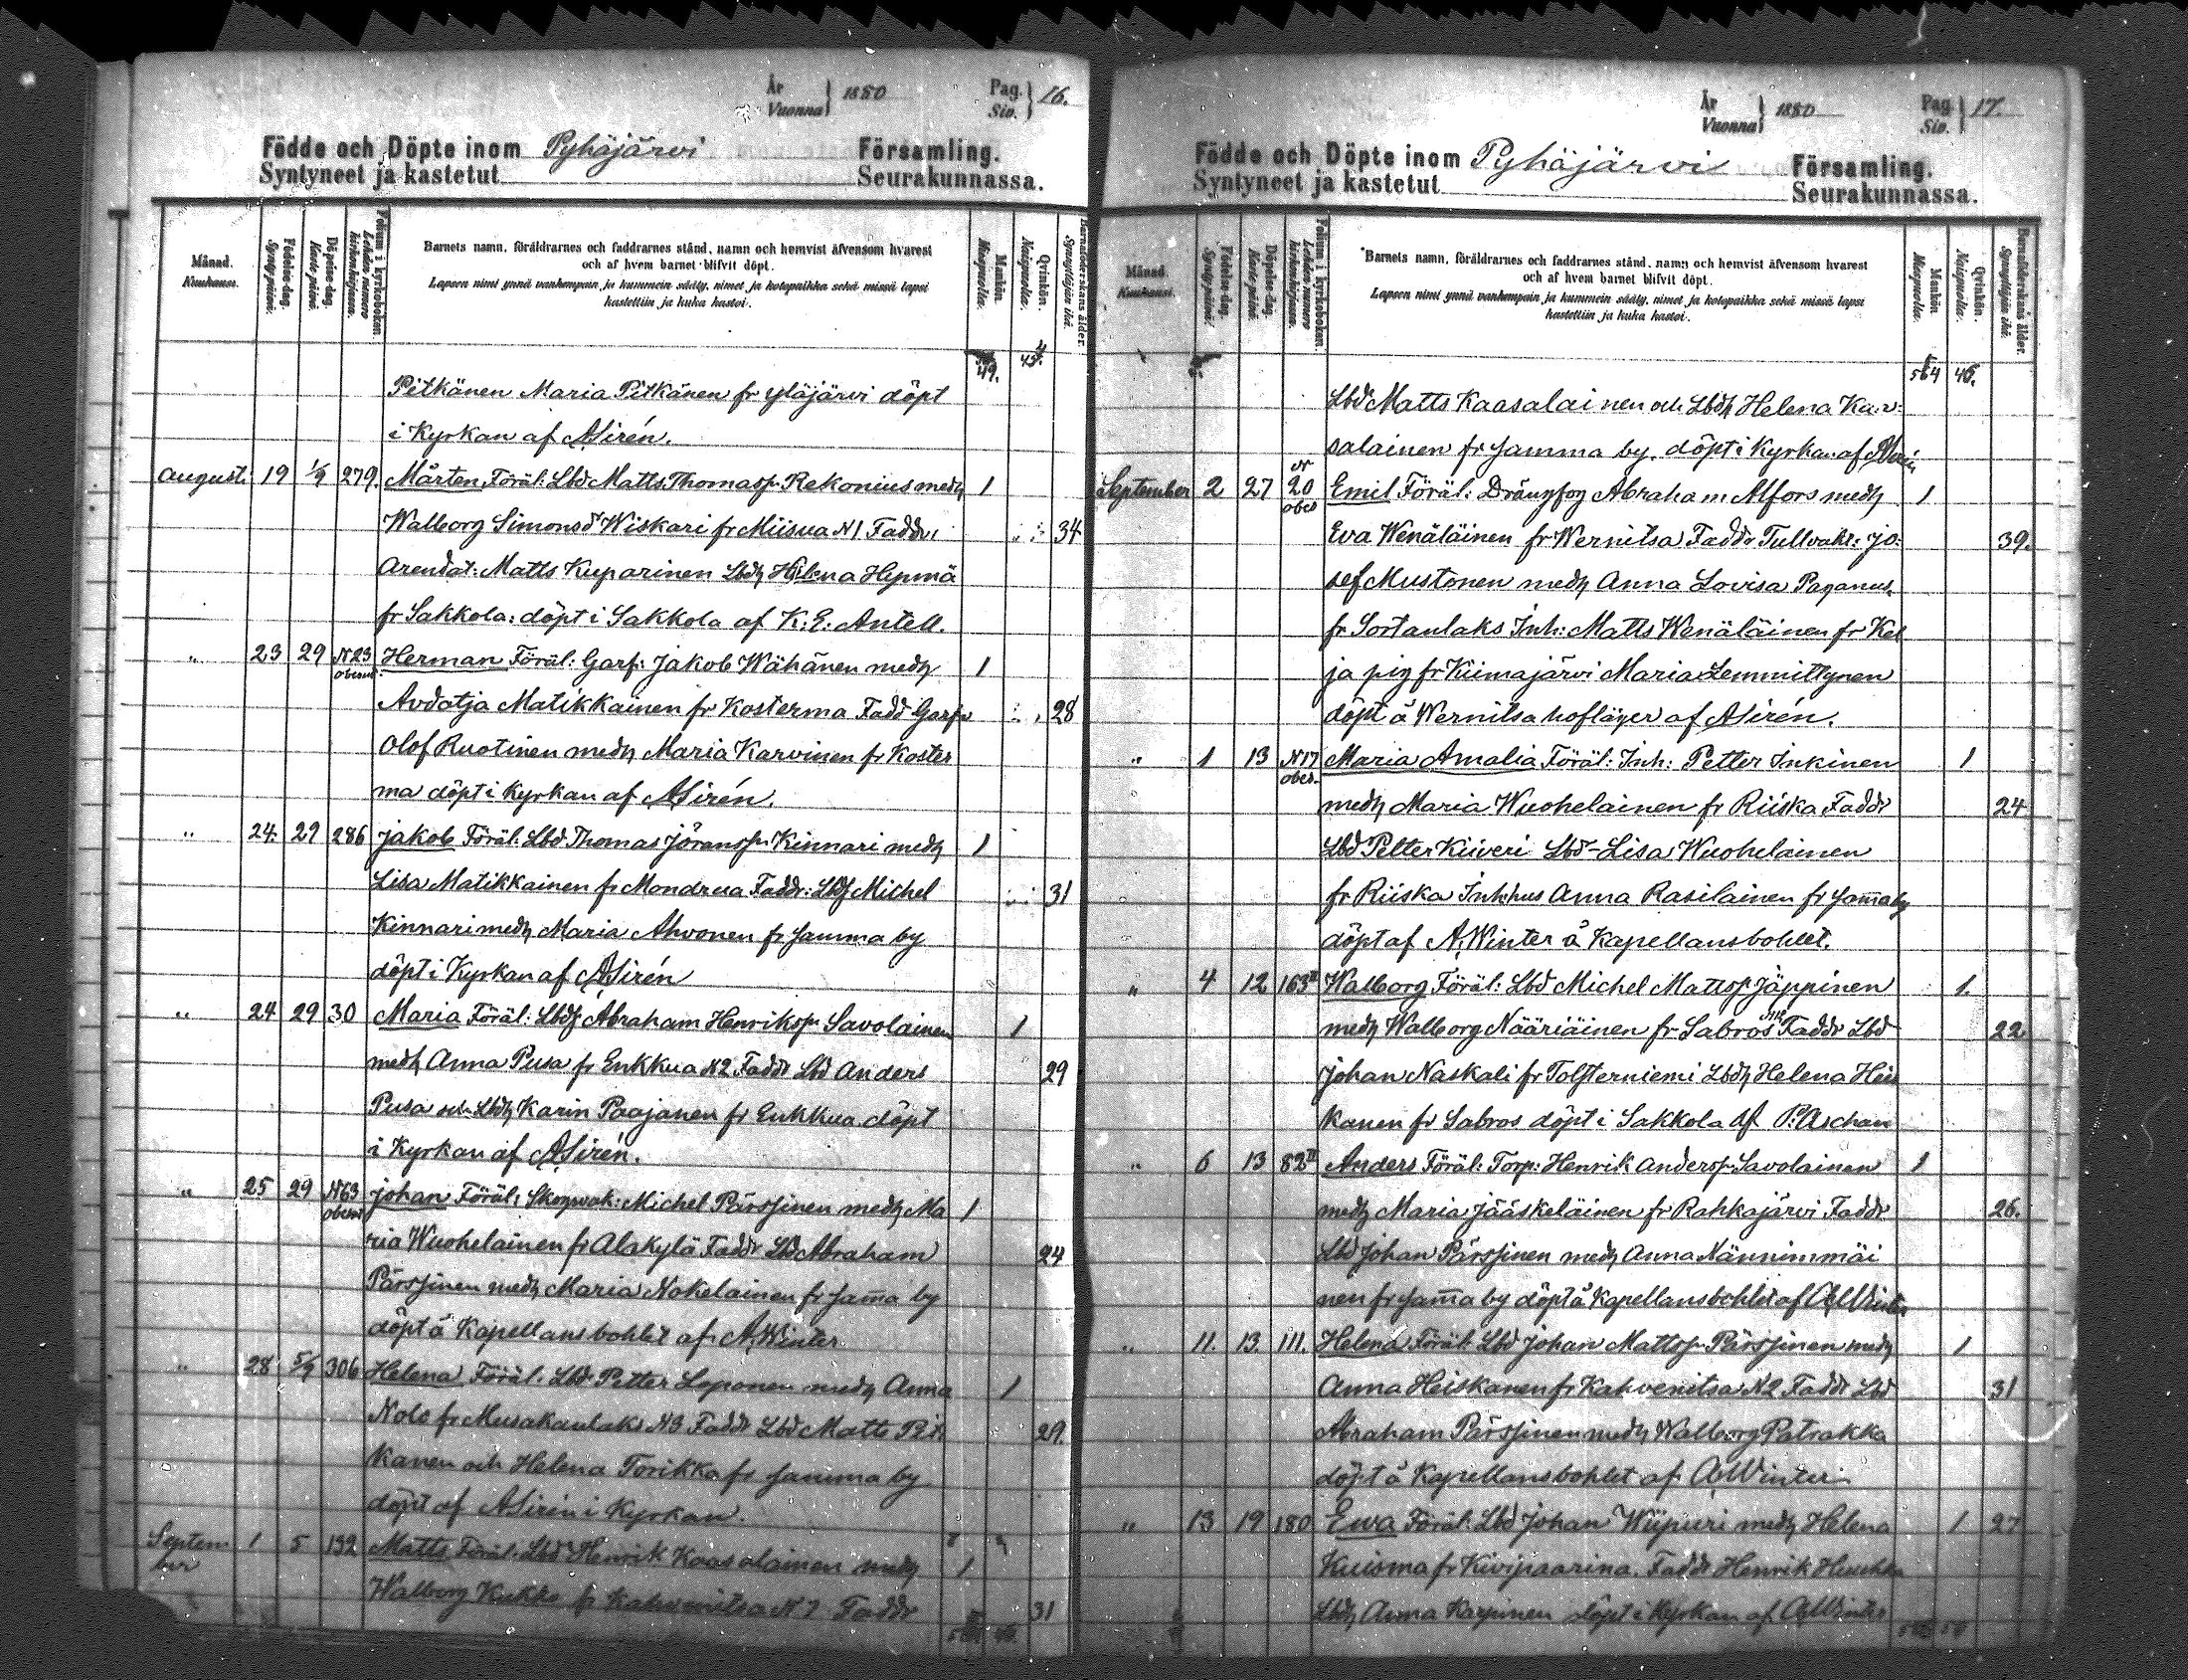 År
Vuonna } 1880
Pag.
Siv. } 16.
Födde och Döpte inom Pyhäjärvi Församling.
Syntyneet ja kastetut Seurakunnassa.
Månad.
Kuukausi.
Födelse-dag.
Syntypäivä.
Döpelse-dag.
Kaste päivä.
Folium i kyrkoboken.
Lehden numero kirkonkirjassa.
Barnets namn, föräldrarnes och faddrarnes stånd, namn och hemvist äfvensom hvarest
och af hvem barnet blifvit döpt.
Lapsen nimi ynnä vanhempain ja kummein sääty, nimet ja kotopaikka sekä missä lapsi
kastettiin ja kuka kastoi.
Mankön.
Miespuolta.
Qvinkön.
Naispuolta.
Barnaföderskans ålder.
Synnyttäjän ikä.
49. 45.
Pitkänen Maria Pitkänen fr Yläjärvi döpt
i Kyrkan af ASirén.
Augusti 19 1/9 279. Mårten Föräl: Lbd Matts Thomasp. Rekonius medh 1
Walborg Simonsd Wiskari fr Miisua N1 Faddr: 34
Arendat: Matts Kuparinen Lbdh Helena Hypmä
fr Sakkola: döpt i Sakkola af K: E: Antell.
" 23 29 N23 obesut. Herman Föräl: Garf: Jakob Wähänen medh 1
Avdatja Matikkainen fr Kosterma Fadd Garfv 28
Olof Ruotinen medh Maria Karvinen fr Koster
ma döpt i Kyrkan af ASirén.
" 24. 29 286 Jakob Föräl: Lbd Thomas Jöransp. Kinnari medh 1
Lisa Matikkainen fr Mondrua Faddr: Lbdf Michel 31
Kinnari medh Maria Ahvonen fr samma by
döpt i Kyrkan af ASirén
" 24 29 30 Maria Föräl: Lbdf Abraham Henriksp. Savolainen 1
medh Anna Pusa fr Enkkua N2 Faddr Lbd Anders 29
Pusa och Lbdh Karin Paajanen fr Enkkua döpt
i Kyrkan af ASirén.
" 25 29 N63 obesut Johan Föräl: Skogvak: Michel Pärssinen medh Ma 1
ria Wuohelainen fr Alakylä Faddr Lbd Abraham 24
Pärssinen medh Maria Nokelainen fr sama by
döpt å Kapellansbohlet af A.Winter
" 28 5/9 306 Helena Föräl. Lbd Petter Leponen medh Anna 1
Nolo fr Musakanlaks N3 Faddr Lbd Matts Pit 29.
kanen och Helena Torikka fr samma by
döpt af ASirén i Kyrkan.
Septem
ber 1 5 132 Matts Föräl. Lbd Henrik Kaasalainen medh 1
Walborg Kukko fr Kahvenitsa N2 Faddr 31
År
Vuonna } 1880
Pag.
Siv. } 17.
Födde och Döpte inom Pyhäjärvi Församling.
Syntyneet ja kastetut Seurakunnassa.
Månad.
Kuukausi.
Födelse-dag.
Syntypäivä.
Döpelse-dag.
Kaste päivä.
Folium i kyrkoboken.
Lehden numero kirkonkirjassa.
Barnets namn, föräldrarnes och faddrarnes stånd, namn och hemvist äfvensom hvarest
och af hvem barnet blifvit döpt.
Lapsen nimi ynnä vanhempain ja kummein sääty, nimet ja kotopaikka sekä missä lapsi
kastettiin ja kuka kastoi.
Mankön
Miespuolta.
Qvinkön.
Naispuolta.
Barnaföderskans ålder.
Synnyttäjän ikä.
46.
Lbd Matts Kaasalainen och Lbdh Helena Kar:
salainen fr samma by. döpt i Kyrkan af
September 2 27 N 20 obes Emil Föräl: Drängfog Abraham Alfors medh 1
Eva Wenäläinen fr Wernitsa Faddr Tullvakt: Jo: 39.
sef Mustonen medh Anna Lovisa Paganus.
fr Sortanlaks Inh: Matts Wenäläinen fr Kel
ja pig fr Kiimajärvi Maria Lemmittynen
döpt å Wernitsa hofläger af ASirén.
" 1 13 N17 obes. Maria Amalia Föräl: Inh: Petter Inkinen 1
medh Maria Wuohelainen fr Riiska Faddr 24
Lbd Petter Kiiveri Lbd Lisa Wuohelainen
fr Riiska Inh:hus Anna Rasilainen fr samaby
döpt af A.Winter å Kapellansbohlet.
" 4 12 163II Walborg Föräl: Lbd Michel Mattsp. Jäppinen 1.
medh Walborg Nääriäinen fr Sabros Faddr Lbd 22
Johan Naskali fr Tolfterniemi Lbdh Helena Heis
kanen fr Sabros döpt i Sakkola af P: Aschan
" 6 13 82II Anders Föräl: Torp: Henrik Andersp. Savolainen 1
medh Maria Jääskeläinen fr Rahkajärvi Faddr 26.
Lbd Johan Pärssinen medh Anna Nännimmäi
nen fr sama by döpt å Kapellansbohlet af AWinter
" 11. 13. 111. Helena Föräl: Lbd Johan Mattsp. Pärssinen medh 1
Anna Heiskanen fr Kahvenitsa N2 Faddr Lbd 31
Abraham Pärssinen medh Walborg Patrakka
döpt å Kapellansbohlet af AWinter
" 13 19 180 Ewa Föräl: Lbd Johan Wiipuri medh Helena 1 27
Kuisma fr Kivipaarina. Faddr Henrik
Lbdh Anna Karpinen döpt i Kyrkan af AWinter